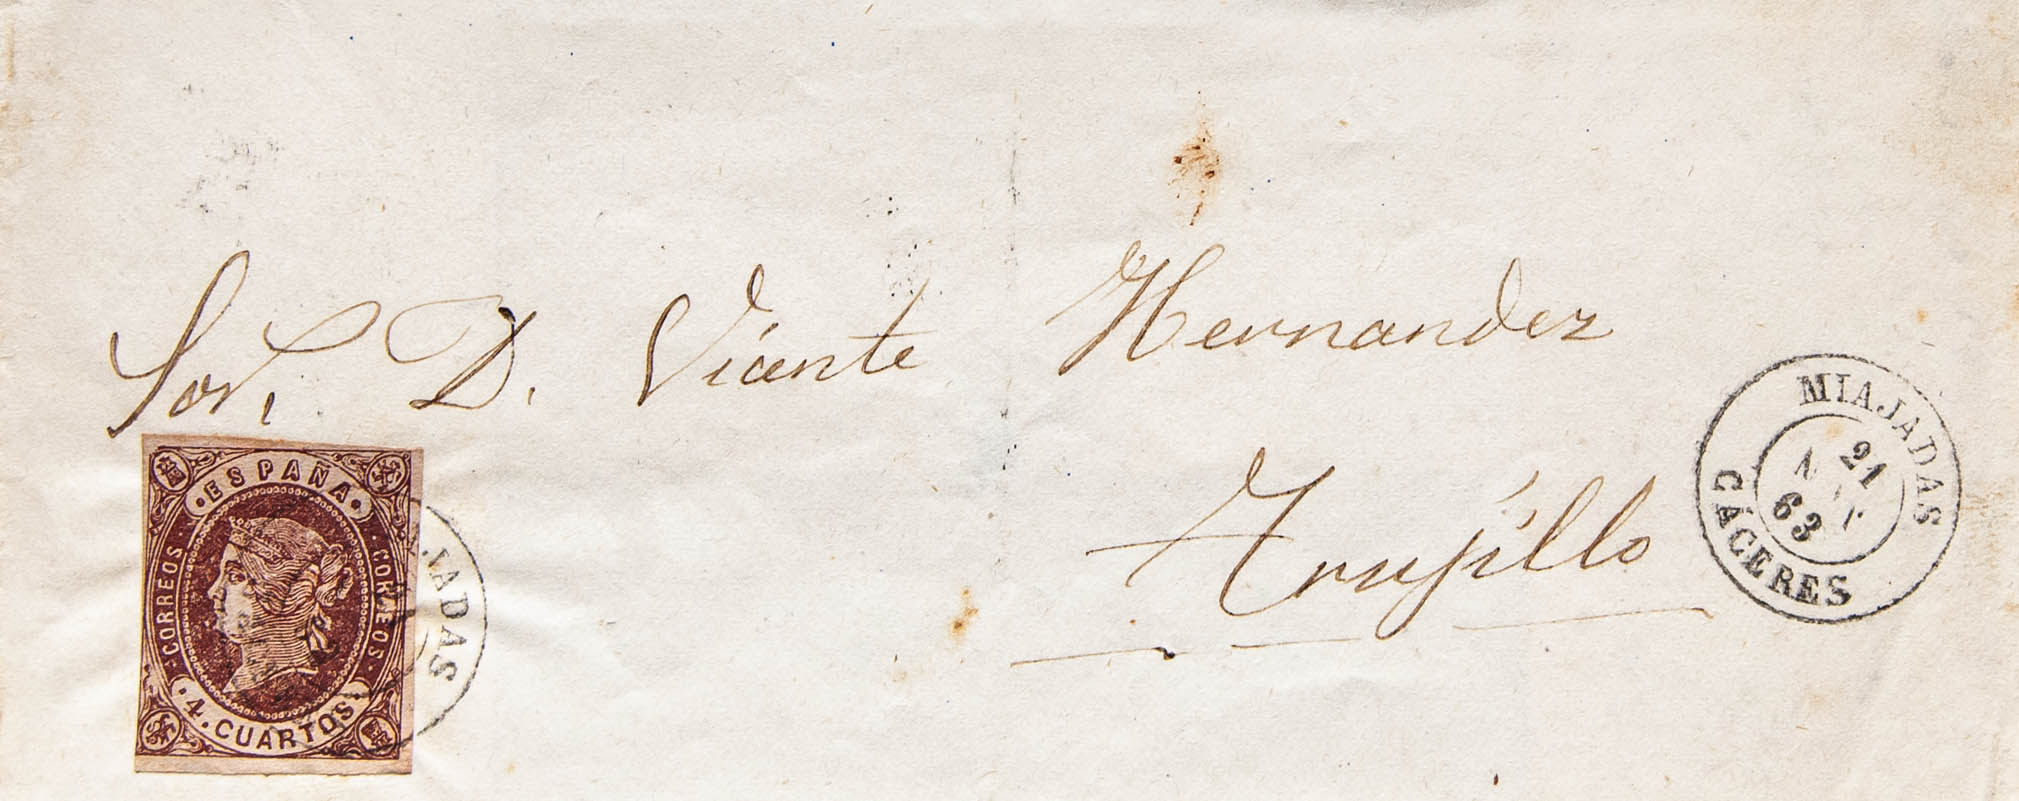 Sor. D. Vicente Hernandez
Trujillo
ESPAÑA
CORREOS
CORREOS
4. CUARTOS
JADAS
MIAJADAS
21
63
CÁCERES